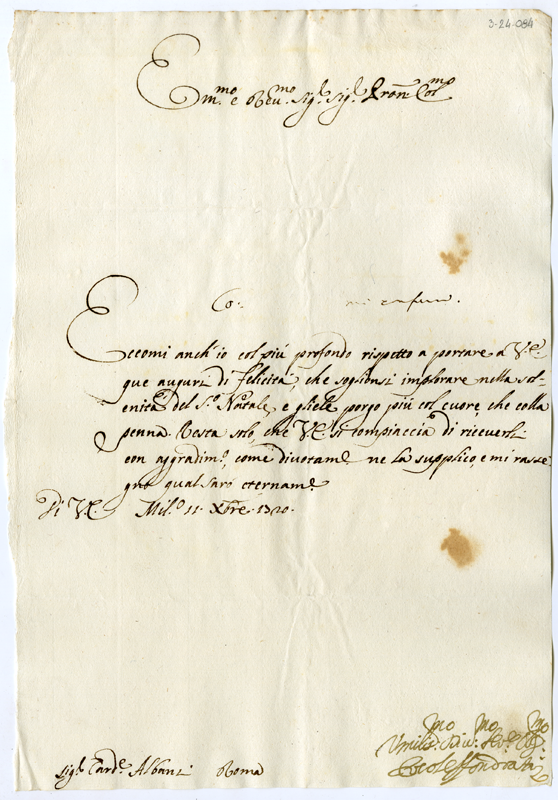 3-24-084
Em.mo e Reu.mo Sig.r Sig.r Pron Col.mo
Co:
Eccomi anch'io col più profondo rispetto a portare a V.E.
que auguri di felicità, che soglionsi implorare nella sol-
enità del S.o Natale, e gliele porgo più col cuore, che colla
penna. Resta solo, che V.E. si compiaccia di riceuerli
con aggradim.o, come diuotam.e ne la supplico, e mi rasse
gno qual sarò eternam.e
Di V.E. Mil.o 11. Xbre. 1720.
mo mo mo
Umilis. Diu: Ser.
Sig.r Card.e Albani Roma